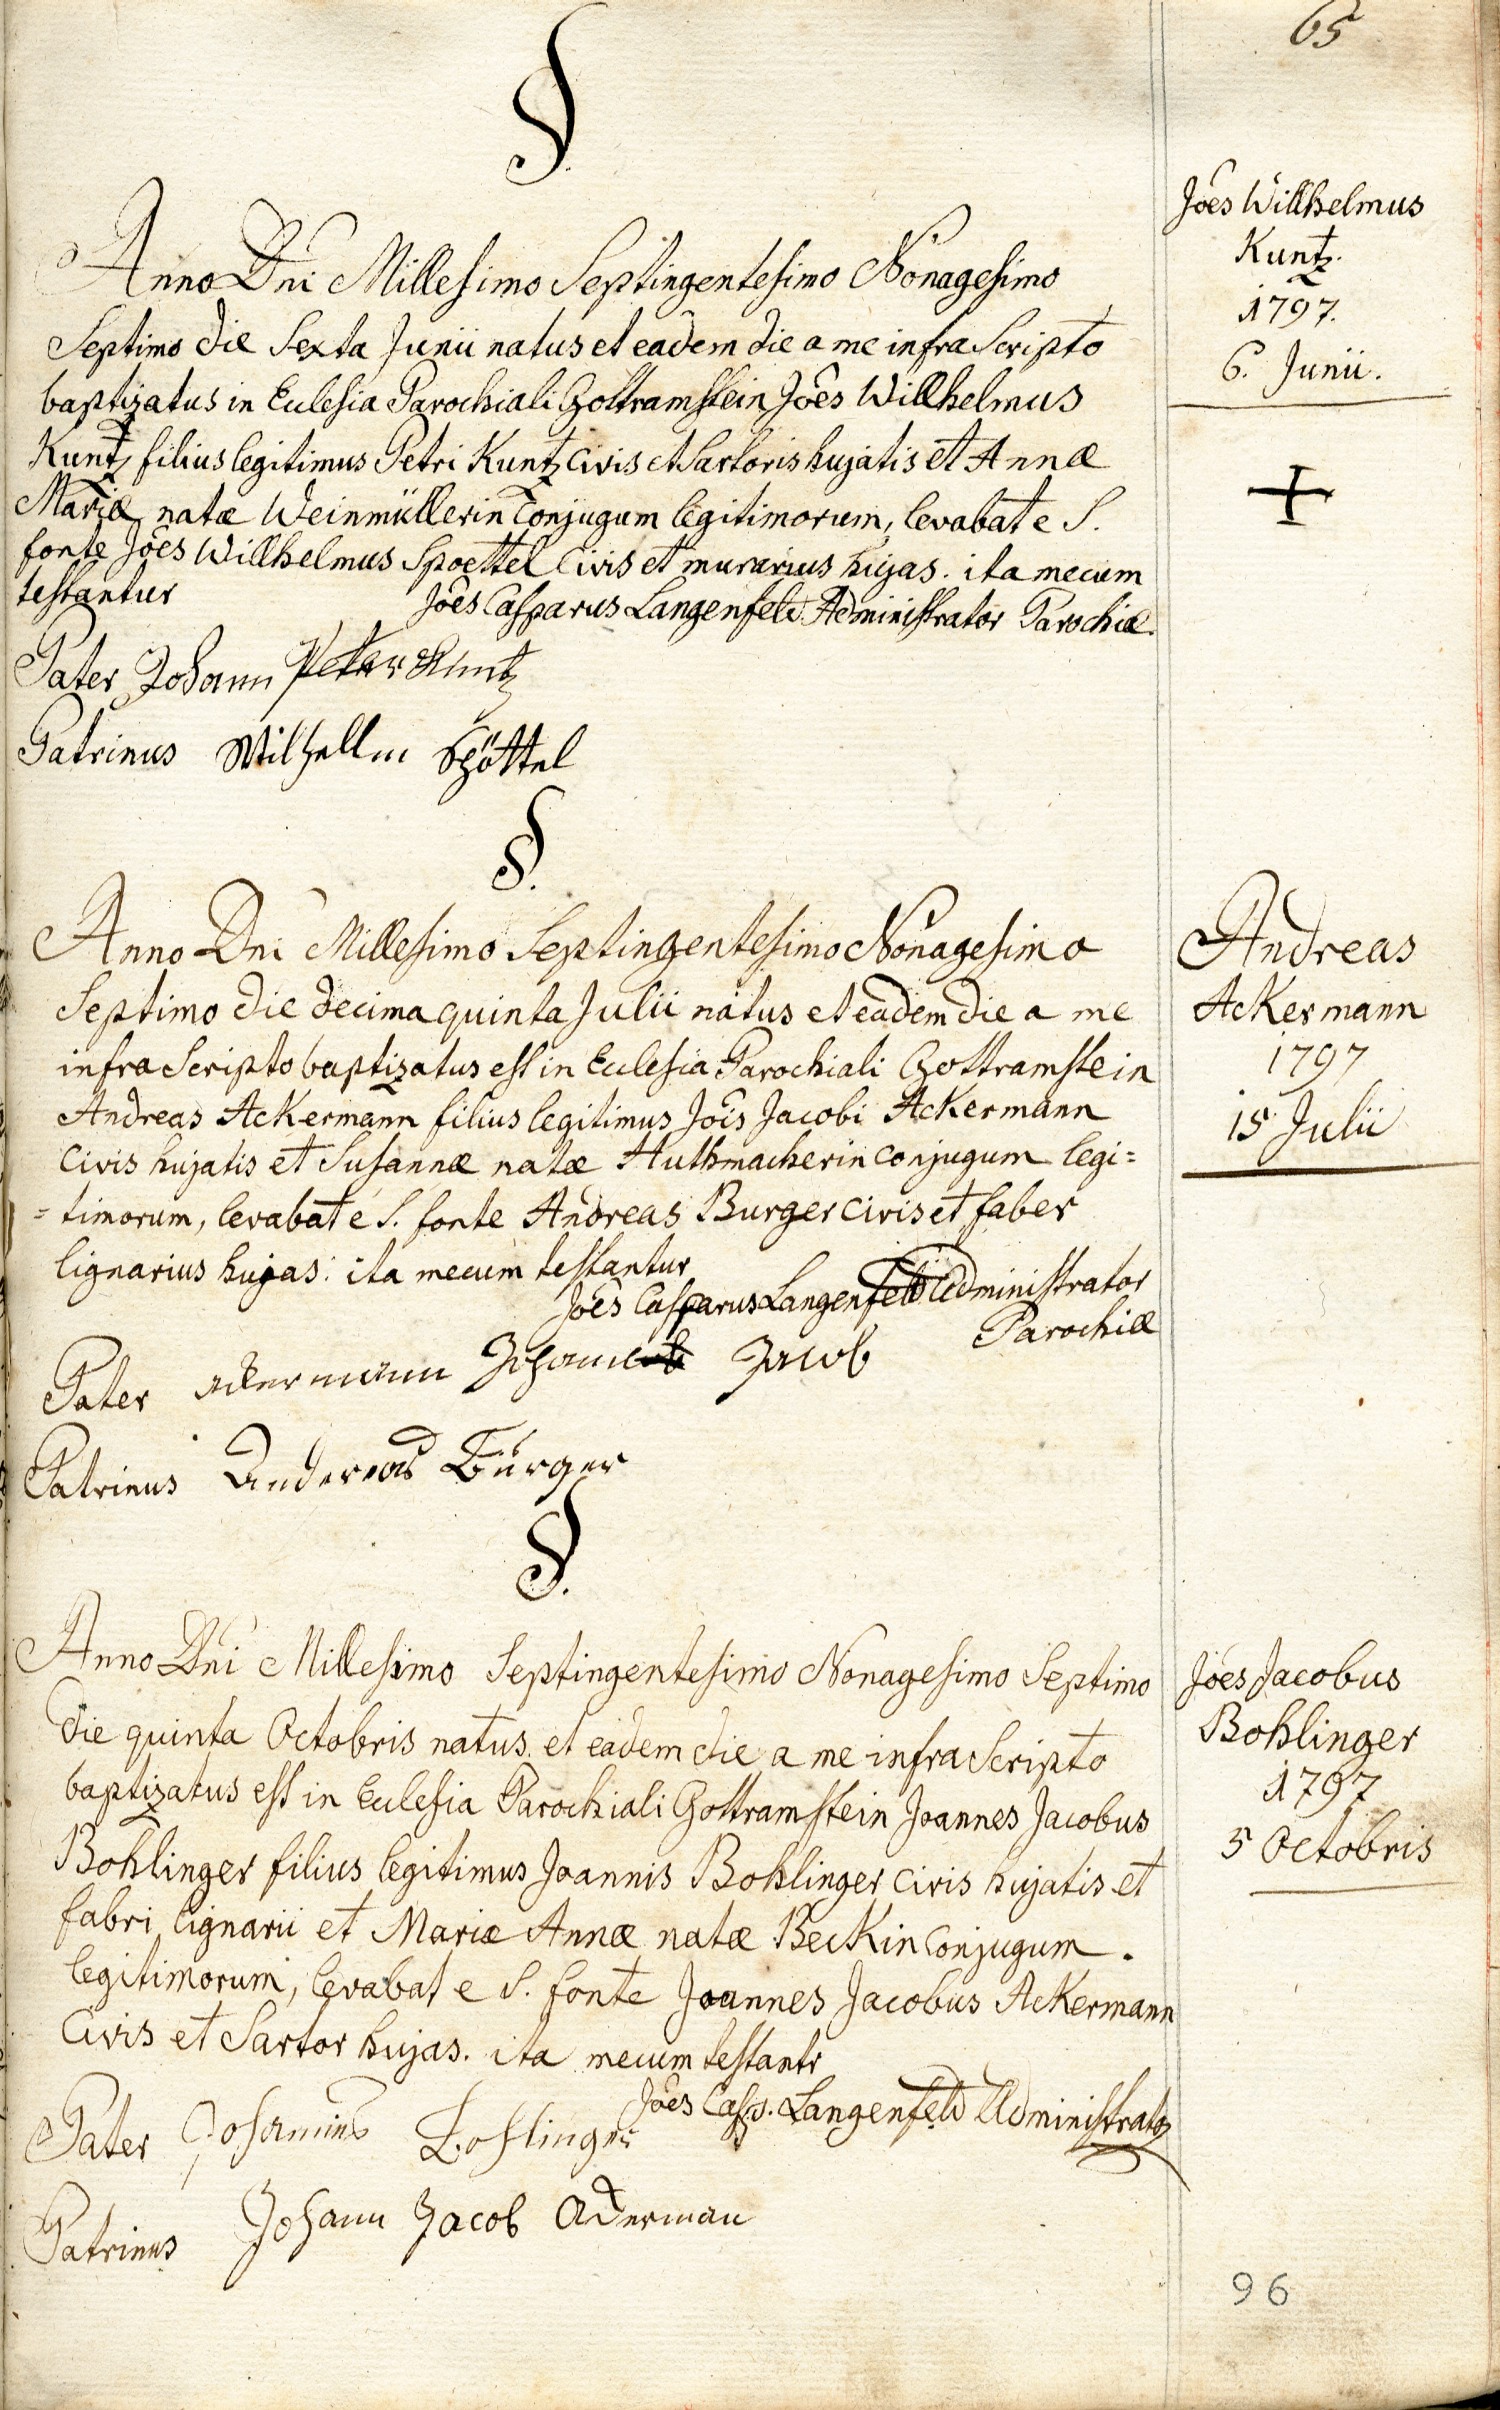 65
§.
Joês Willhelmus
Kuntz.
1797.
6. Junii.
Anno Dni Millesimo Septingentesimo Nonagesimo
Septimo die Sexta Junii natus et eadem die a me infra Scripto
baptizatus in Eclesia Parochiali Gottramstein Joês Willhelmus
Kuntz filius legitimus Petri Kuntz civis et Sartoris hujatis et Annæ
Mariæ natæ Weinmüllerin Conjugum legitimorum, levabat e S.
fonte Joês Willhelmus Spoettel Civis et murarius hujas. ita mecum
testantur
Joês Casparus Langenfeld Administrator Parochiæ.
Pater Johann Peter Kuntz
Patrinus Wilhellm Spöttel
§.
Andreas
Ackermann
1797
15 Julii
Anno Dni Millesimo Septingentesimo Nonagesimo
Septimo die decima quinta Julii natus et eadem die a me
infra Scripto baptizatus est in Eclesia Parochiali Gottramstein
Andreas Ackermann filius legitimus Jois Jacobi Ackermann
Civis hujatis et Susannæ natæ Huthmacherin conjugum legi=
=timorum, levabat e S. fonte Andreas Burger civis et faber
lignarius hujas: ita mecum testantur
Joês Casparus Langenfeld Administrator
Parochiæ
Pater Ackermann Jacob
Patrinus Andereas Bürger
§.
Joês Jacobus
Bohlinger
1797
5 Octobris
Anno Dni Millesimo Septingentesimo Nonagesimo Septimo
die quinta Octobris natus et eadem die a me infra Scripto
baptizatus est in Eclesia Parochiali Gottramstein Joannes Jacobus
Bohlinger filius legitimus Joannis Bohlinger civis hujatis et
fabri lignarii et Mariæ Annæ natæ Beckin Conjugum.
legitimorum, levabat e S. fonte Joannes Jacobus Ackermann
Civis et Sartor hujas. ita mecum testantr
Joês Casp. Langenfeld Administrator
Pater Johannes Bohlinger
Patrinus Johann Jacob Ackerman
96